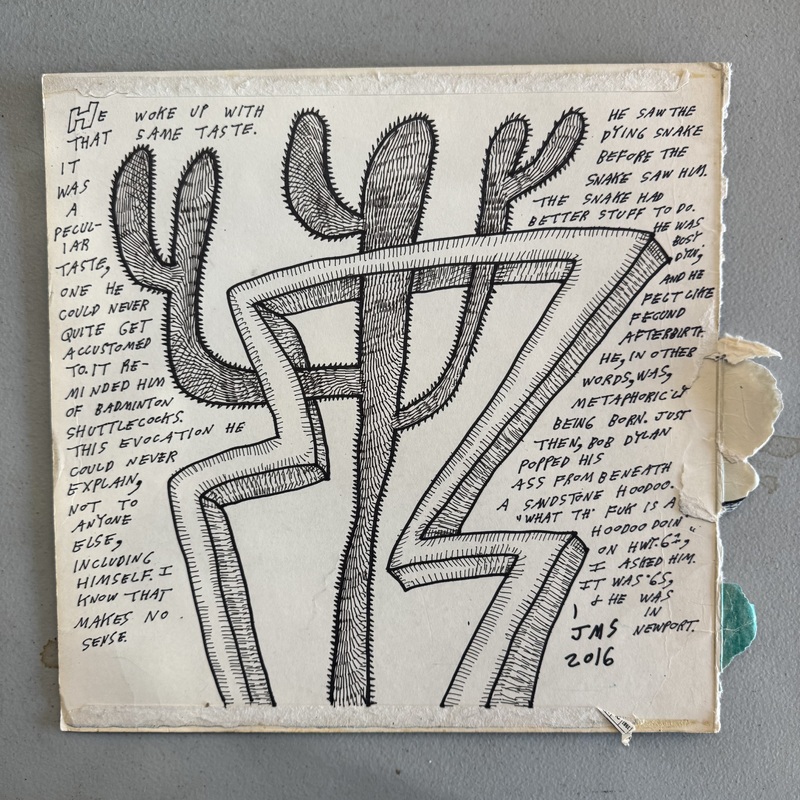 HE WOKE UP WITH
THAT SAME TASTE.
IT
WAS
A
PECUL-
IAR
TASTE,
ONE HE
COULD NEVER
QUITE GET
ACCUSTOMED
TO. IT RE-
MINDED HIM
OF BADMINTON
SHUTTLECOCKS.
THIS EVOCATION HE
COULD NEVER
EXPLAIN,
NOT TO
ANYONE
ELSE,
INCLUDING
HIMSELF. I
KNOW THAT
MAKES NO
SENSE.
HE SAW THE
DYING SNAKE
BEFORE THE
SNAKE SAW HIM.
THE SNAKE HAD
BETTER STUFF TO DO.
HE WAS
BUSY
DYIN',
AND HE
FELT LIKE
FECUND
AFTERBIRTH.
HE, IN OTHER
WORDS, WAS,
METAPHORIC'LY
BEING BORN. JUST
THEN, BOB DYLAN
POPPED HIS
ASS FROM BENEATH
A SANDSTONE HOODOO.
"WHAT TH' FUK IS A
HOODOO DOIN'
ON HWY. 62,"
I ASKED HIM.
IT WAS '65,
& HE WAS
IN
NEWPORT.
JMS
2016